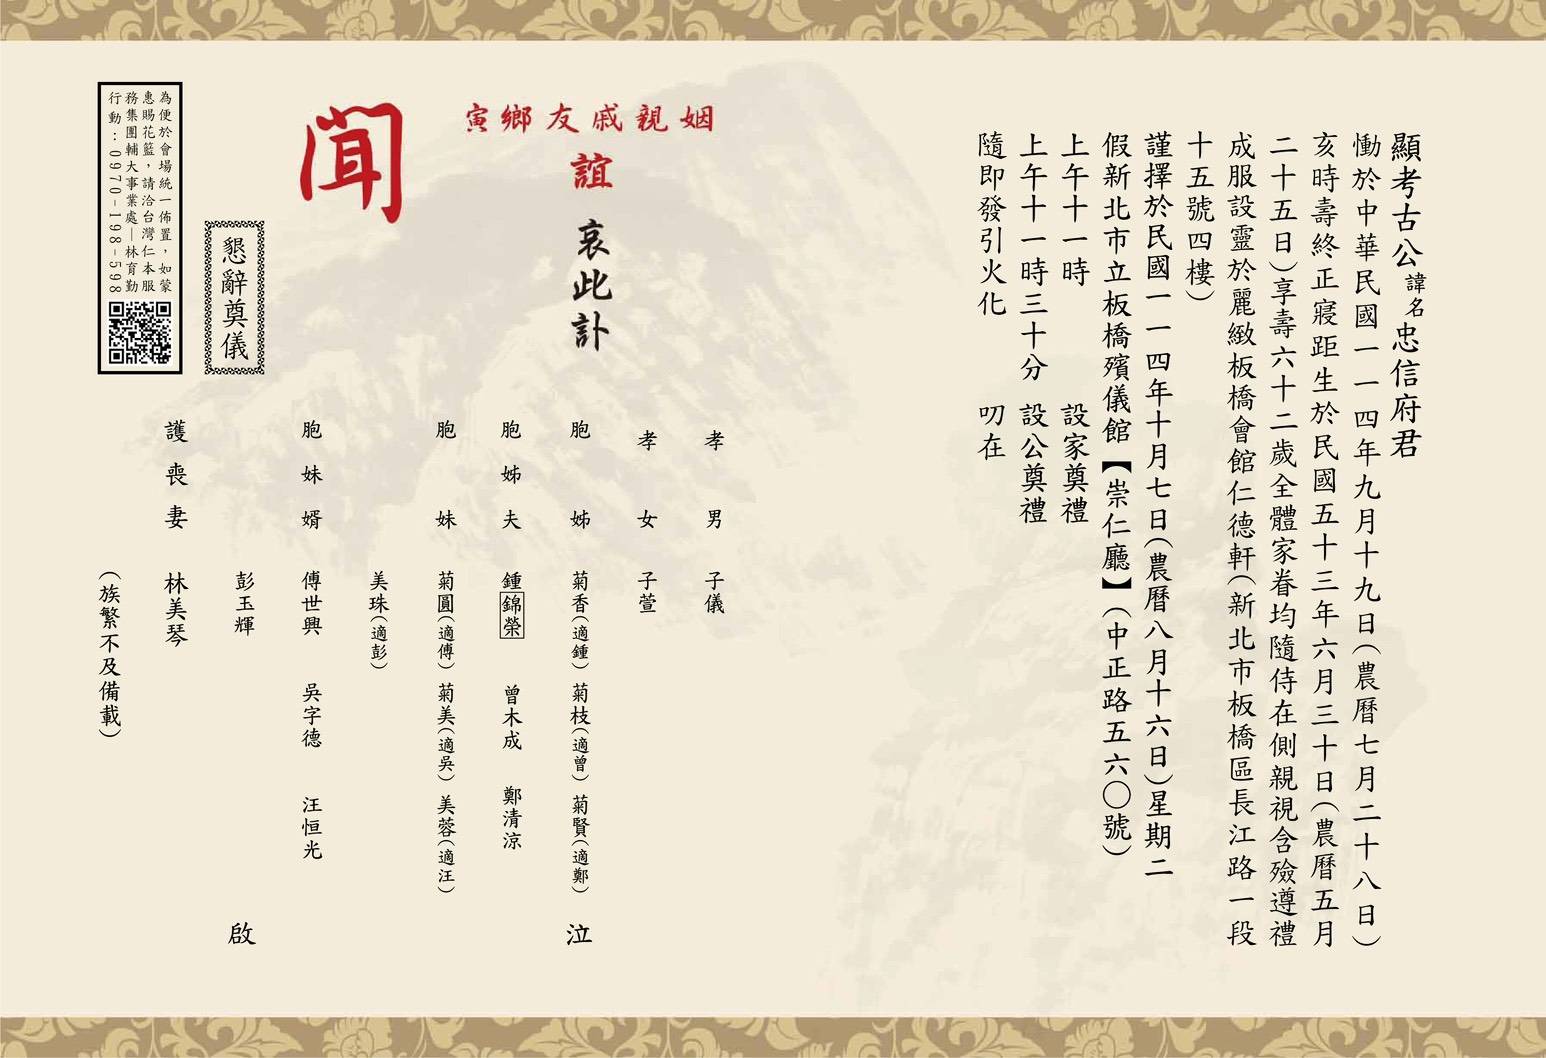 顯考古公諱名忠信府君
慟於中華民國一一四年九月十九日(農曆七月二十八日)
亥時壽終正寢距生於民國五十三年六月三十日(農曆五月
二十五日)享壽六十二歲全體家眷均隨侍在側親視含殮遵禮
成服設靈於麗緻板橋會館仁德軒(新北市板橋區長江路一段
十五號四樓)
謹擇於民國一一四年十月七日(農曆八月十六日)星期二
假新北市立板橋殯儀館【崇仁廳】(中正路五六〇號)
上午十一時 設家奠禮
上午十一時三十分 設公奠禮
隨即發引火化 叨在
姻親戚友鄉寅
誼
哀此訃
聞
孝男 子儀
孝女 子萱
胞姊 菊香(適鍾) 菊枝(適曾) 菊賢(適鄭) 泣
胞姊夫 鍾錦榮 曾木成 鄭清涼
胞妹 菊圓(適傅) 菊美(適吳) 美蓉(適汪)
美珠(適彭)
胞妹婿 傅世興 吳字德 汪恒光
彭玉輝 啟
護喪妻 林美琴
(族繁不及備載)
懇辭奠儀
為便於會場統一佈置,如蒙
惠賜花籃,請洽台灣仁本服
務集團輔大事業處—林育勤
行動:0970-198-598